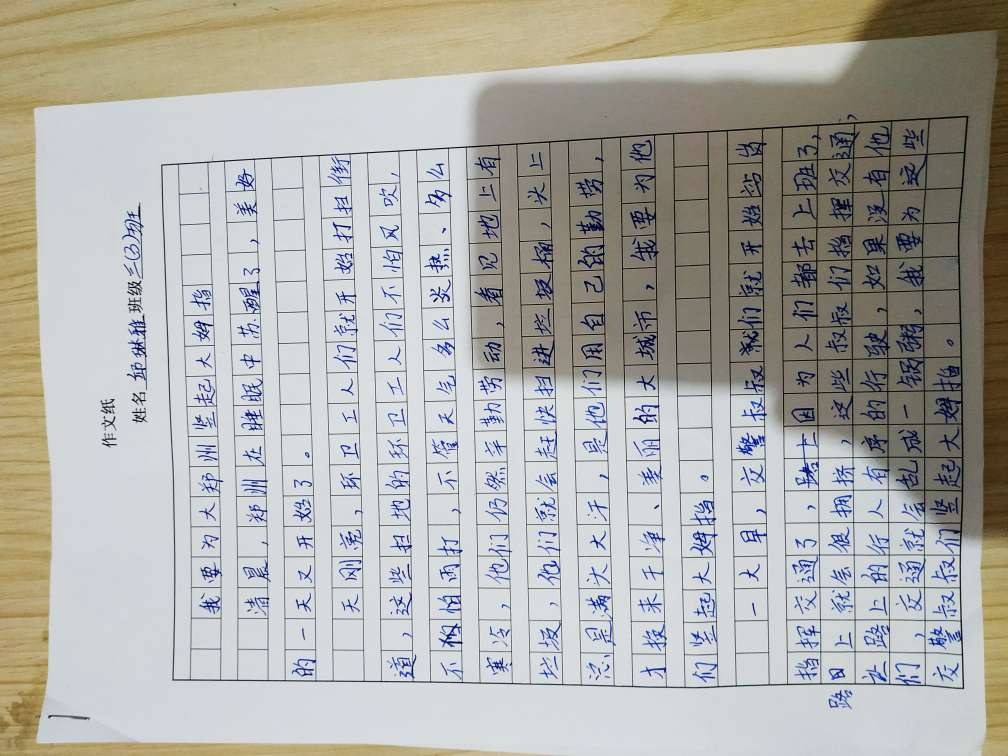 作文纸
姓名 邱琳雅 班级 三(3)班
我要为大郑州竖起大姆指
清晨，郑州在睡眠中苏醒了，美好
的一天又开始了。
天刚亮，环卫工人们就开始打扫街
道，这些扫地的环卫工人们不怕风吹，
不怕雨打，不管天气多么炎热、多么
寒冷，他们仍然辛勤劳动，看见地上有
垃圾，他们就会赶快扫进垃圾桶，头上
总是满头大汗，是他们用自己的勤劳，
才换来干净、美丽的大城市，我要为他
们竖起大姆指。
一大早，交警叔叔就们就开始站岗
指挥交通了，因为人们都去上班了，
路口上就会很拥挤，这些叔叔们指挥交通，
让路上的行人有序的行驶，如果没有他
们，交通就会乱成一锅粥，我要为这些
交警叔叔们竖起大姆指。